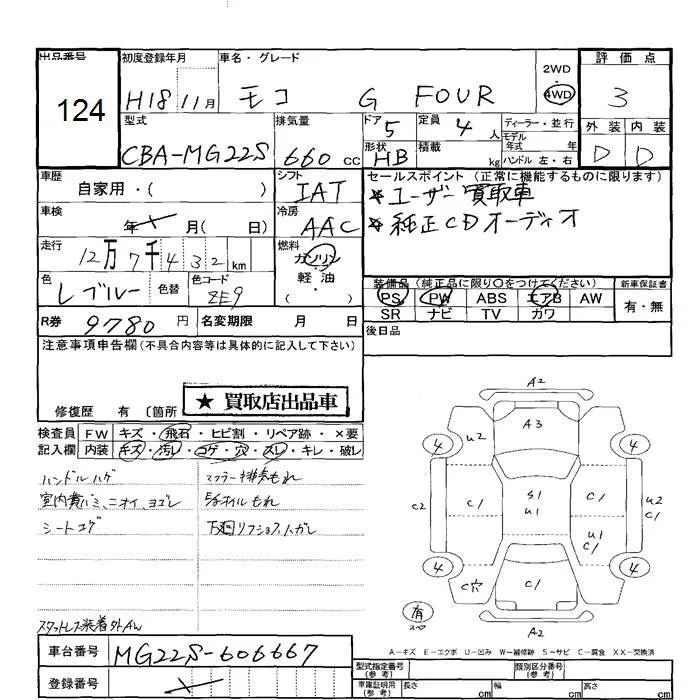 出品番号 初度登録年月 車名・グレード 2WD 評価点
124 H18 11月 モコ G FOUR 4WD 3
型式 排気量 ドア 5 定員 4人 ディーラー・並行 外装 内装
CBA-MG22S 660cc 形状 HB 積載 kg モデル年式 年式 ハンドル 左・右 D D
車歴 自家用・( ) シフト IAT セールスポイント(正常に機能するものに限ります)
車検 年 月( 日) 冷房 AAC ★ユーザー買取車
★純正CDオーディオ
走行 12万7千432km 燃料 ガソリン・軽油・( )
色 Lブルー 色替 色コード ZE9 装備品(純正品に限り〇をつけてください) 新車保証書
PS PW ABS エアB AW 有・無
R券 9780円 名変期限 月 日 SR ナビ TV カワ
後日品
注意事項申告欄(不具合内容等は具体的に記入して下さい)
★ 買取店出品車
修復歴 有 〔箇所
検査員 FW キズ・飛石・ヒビ割・リペア跡・×要
記入欄 内装 キズ・汚レ・コゲ・穴・スレ・キレ・破レ
ハンドルハゲ マフラー排気もれ
シートコゲ
スタットレス装着外AW
A2
A3
U2
4 4
S1
U1
C2 C1 C1 U2
C1
U1
C1
4 4
C穴 C1
有
スペア
A2
A-キズ E-エクボ U-凹み W-補修跡 S-サビ C-腐食 XX-交換済
車台番号 MG22S-606667
登録番号
型式指定番号(参考) 類別区分番号(参考)
車庫証明用(参考) 長さ cm 幅 cm 高さ cm